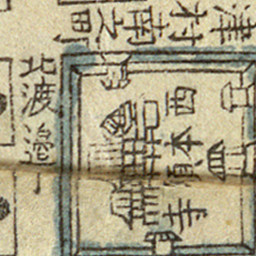 津村南之町
西本願寺
北渡邊